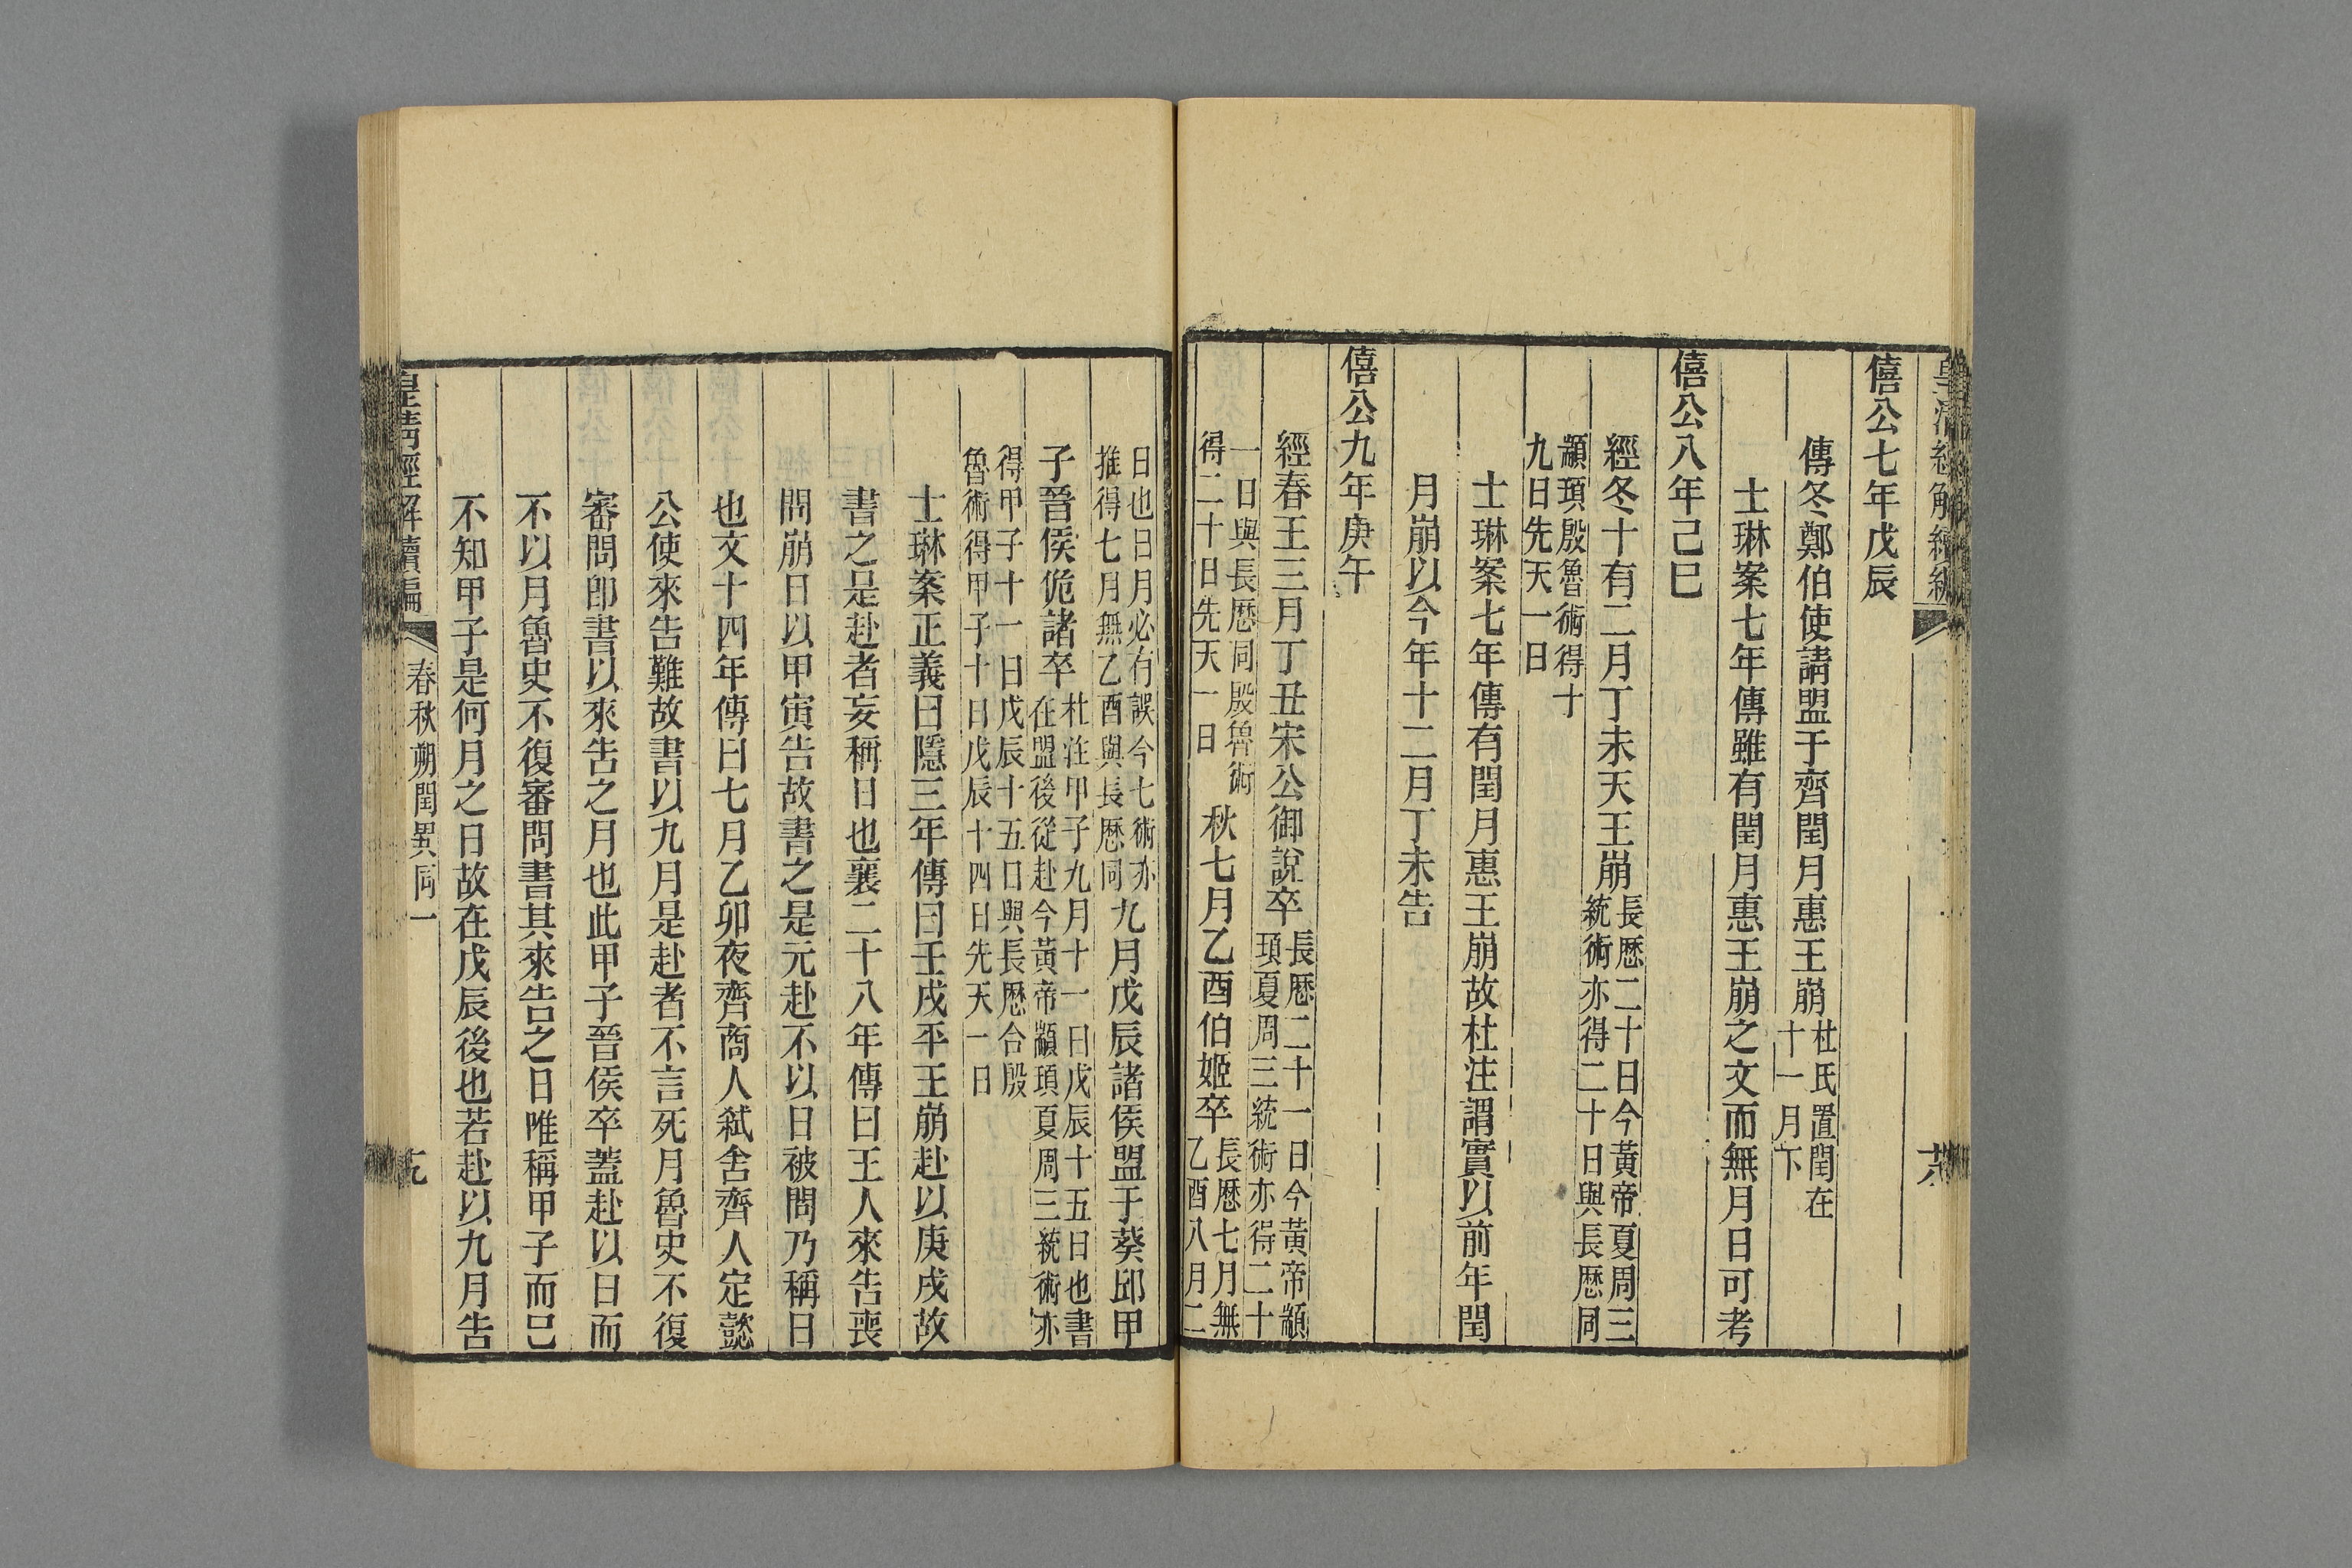 皇清經解續編
僖公七年戊辰
傳冬鄭伯使請盟于齊閏月惠王崩杜氏置閏在十一月下
士琳案七年傳雖有閏月惠王崩之文而無月日可考
僖公八年己巳
經冬十有二月丁未天王崩長厯二十日今黃帝夏周三統術亦得二十日與長厯同
顓頊殷魯術得十九日先天一日
士琳案七年傳有閏月惠王崩故杜注謂實以前年閏
月崩以今年十二月丁未告
僖公九年庚午
經春王三月丁丑宋公御說卒長厯二十一日今黃帝顓頊夏周三統術亦得二十
一日與長厯同殷魯術得二十日先天一日秋七月乙酉伯姬卒長厯七月無乙酉八月二
日也日月必有誤今七術亦推得七月無乙酉與長厯同九月戊辰諸侯盟于葵邱甲
子晉侯佹諸卒杜注甲子九月十一日戊辰十五日也書在盟後從赴今黃帝顓頊夏周三統術亦
得甲子十一日戊辰十五日與長厯合殷魯術得甲子十日戊辰十四日先天一日
士琳案正義曰隱三年傳曰壬戌平王崩赴以庚戌故
書之是赴者妄稱日也襄二十八年傳曰王人來告喪
問崩日以甲寅告故書之是元赴不以日被問乃稱日
也文十四年傳曰七月乙卯夜齊商人弒舍齊人定懿
公使來告難故書以九月是赴者不言死月魯史不復
審問卽書以來告之月也此甲子晉侯卒蓋赴以日而
不以月魯史不復審問書其來告之日唯稱甲子而已
不知甲子是何月之日故在戊辰後也若赴以九月告
皇淸經解續編 春秋朔閏異同一